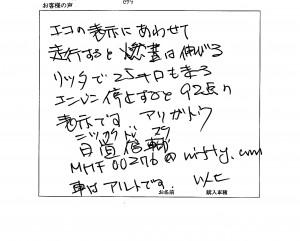 お客様の声
エコの表示にあわせて
走行すると燃費は伸びる
リッタで25キロも走る
エンジン停止すると92点の
表示です アリガトウ
MHF00276@nifty.com
車はアルトです.
お名前
購入車種